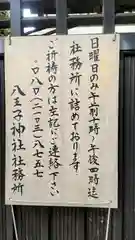 日曜日のみ午前十時〜午後四時迄
社務所に詰めております。
ご祈祷の方は左記にご連絡下さい
〇八〇(二一〇三)八七五七
八王子神社社務所